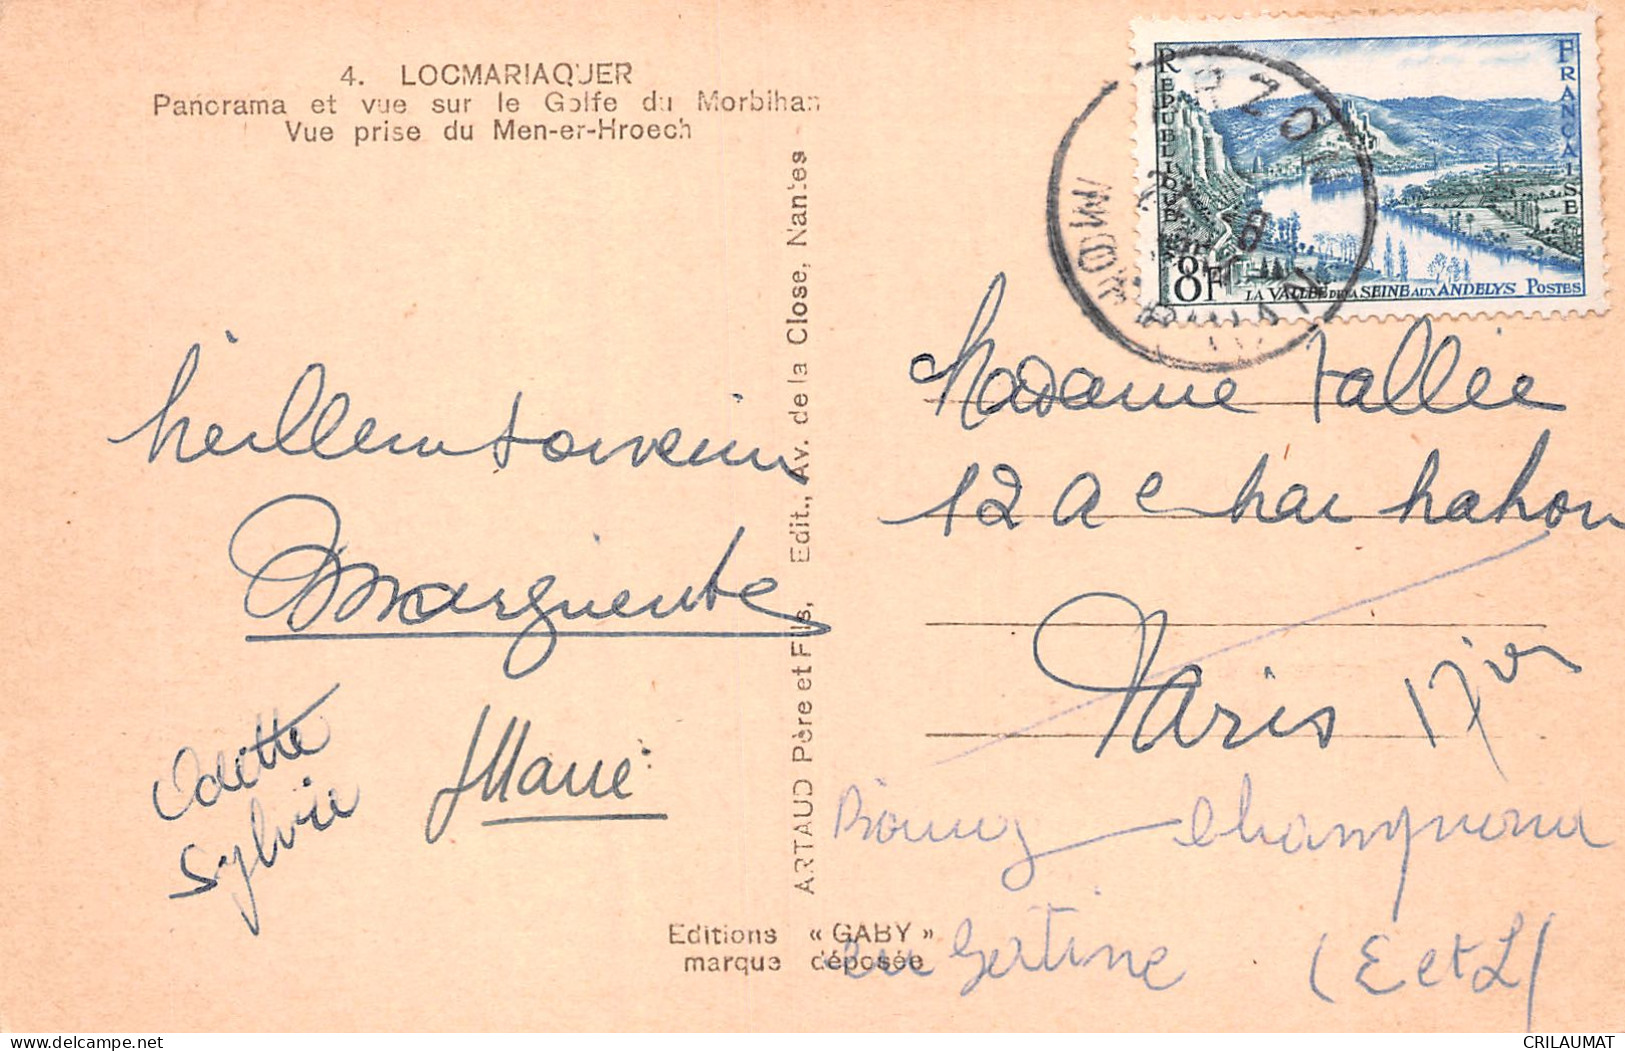 4. LOCMARIAQUER
Panorama et vue sur le Golfe du Morbihan
Vue prise du Men-er-Hroech
Meilleur souvenir
Marguerite
Odette
Sylvie
Marie
ARTAUD Père et Fils, Edit., Av. de la Close, Nantes
Editions « GABY »
marque déposée
REPUBLIQUE FRANÇAISE
8F LA VALLÉE DE LA SEINE AUX ANDELYS POSTES
ARZON
MORBIHAN
Madame Vallée
12 Mahon
Paris 17
en Gertine (E et L)
CRILAUMAT